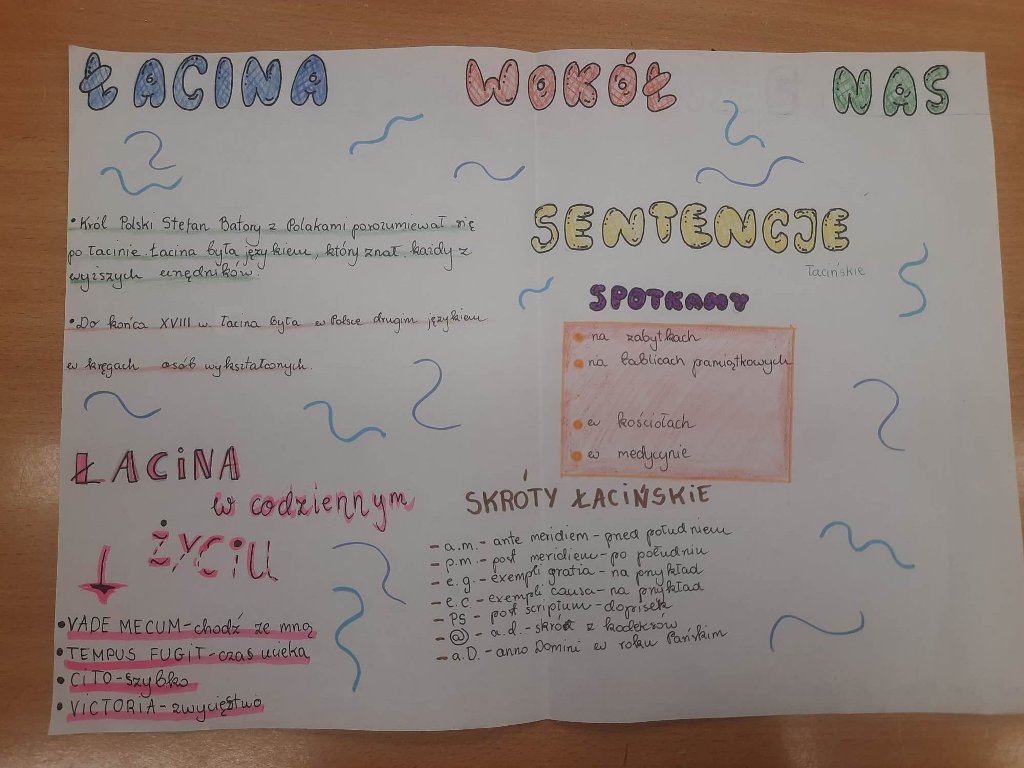 ŁACINA WOKÓŁ NAS
• Król Polski Stefan Batory z Polakami porozumiewał się
po łacinie. Łacina była językiem, który znał każdy z
wyższych urzędników.
• Do końca XVIII w łacina była w Polsce drugim językiem
w kręgach osób wykształconych.
SENTENCJE
łacińskie
SPOTKAMY
na zabytkach
na tablicach pamiątkowych
w kościołach
w medycynie
ŁACINA
w codziennym
ŻYCIU
• VADE MECUM-chodź ze mną
• TEMPUS FUGIT-czas ucieka
• CITO-szybko
• VICTORIA-zwycięstwo
SKRÓTY ŁACIŃSKIE
- a.m. - ante meridiem - przed południem
- p.m. - post meridiem - po południu
- e.g. - exempli gratia - na przykład
- e.c - exempli causa - na przykład
- PS - post scriptum - dopisek
- @ - a.d. - skrót z kodeksów
- a.D. - anno Domini w roku Pańskim